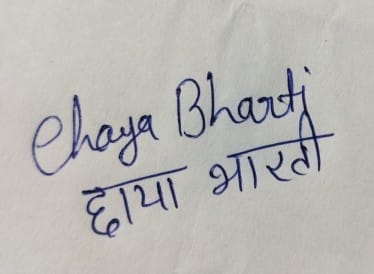 Chaya Bharti
छाया भारती